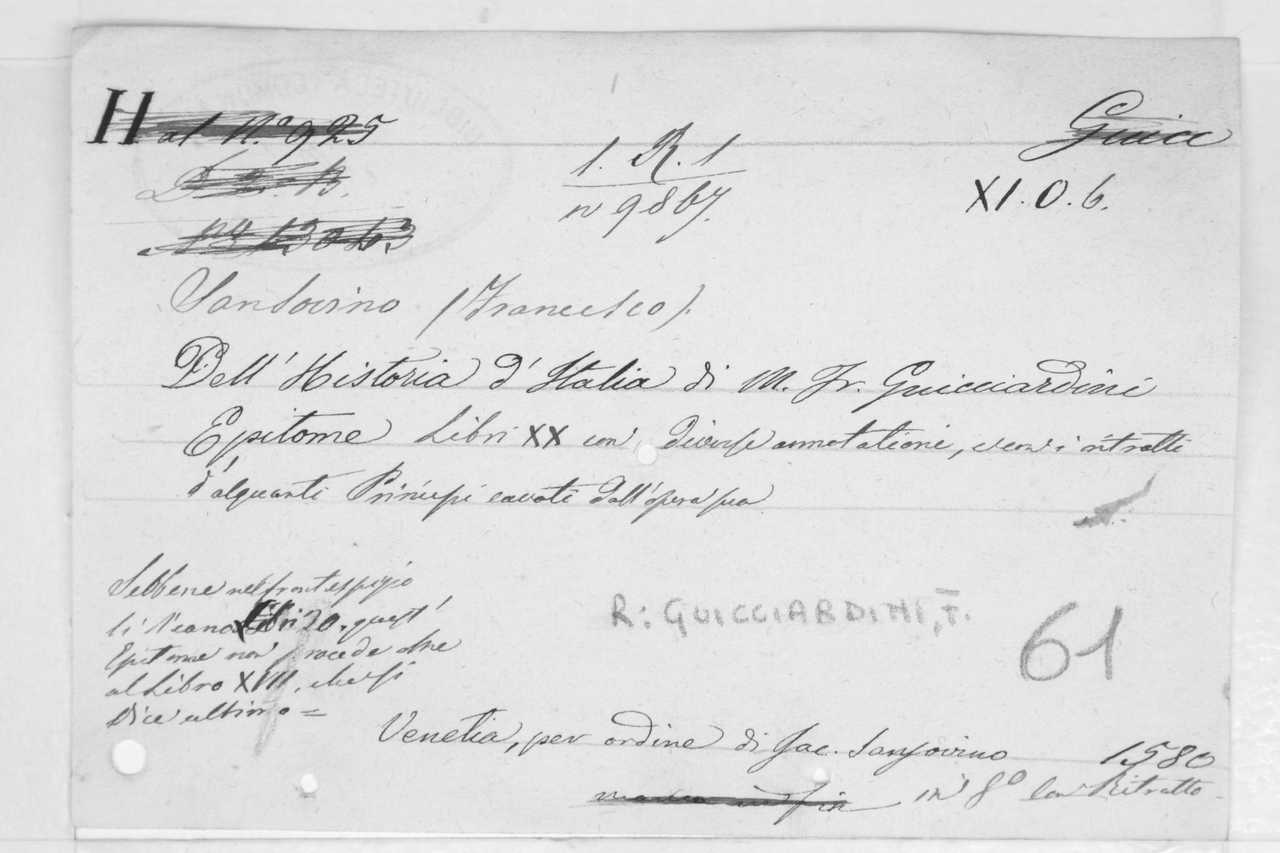 H al N.º 925
1. R. 1
nº 9867.
Guicc
XI. O. 6.
Sansovino (Francesco).
Dell' Historia d' Italia di M. Fr. Guicciardini
Epitome Libri XX con diverse annotationi, e con i ritratti
d'alquanti Principi cavati dall'opera sua
Sebbene nel frontespizio
si dicano Libri 20. quest'
Epitome non procede che
al Libro XVIII, che si
dice ultimo =
R: GUICCIARDINI, F.
61
Venetia, per ordine di Jac. Sansovino 1580
in 8º con Ritratto